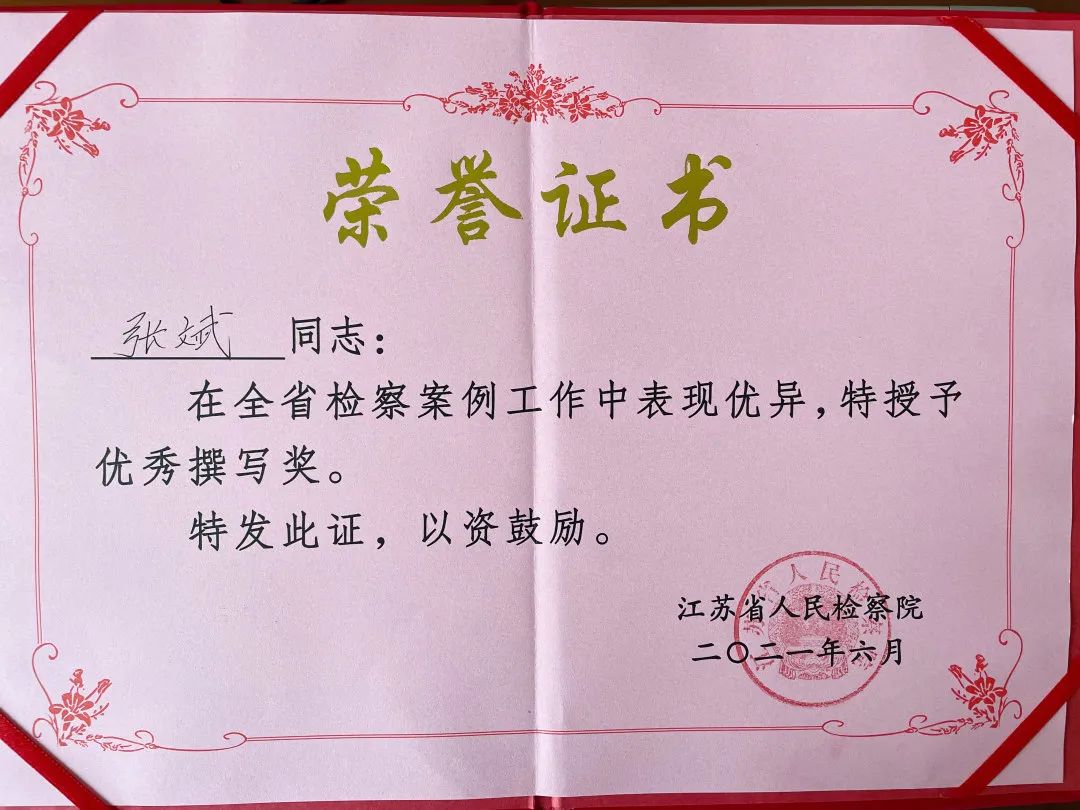 荣誉证书
张斌 同志：
在全省检察案例工作中表现优异，特授予
优秀撰写奖。
特发此证，以资鼓励。
江苏省人民检察院
二〇二一年六月